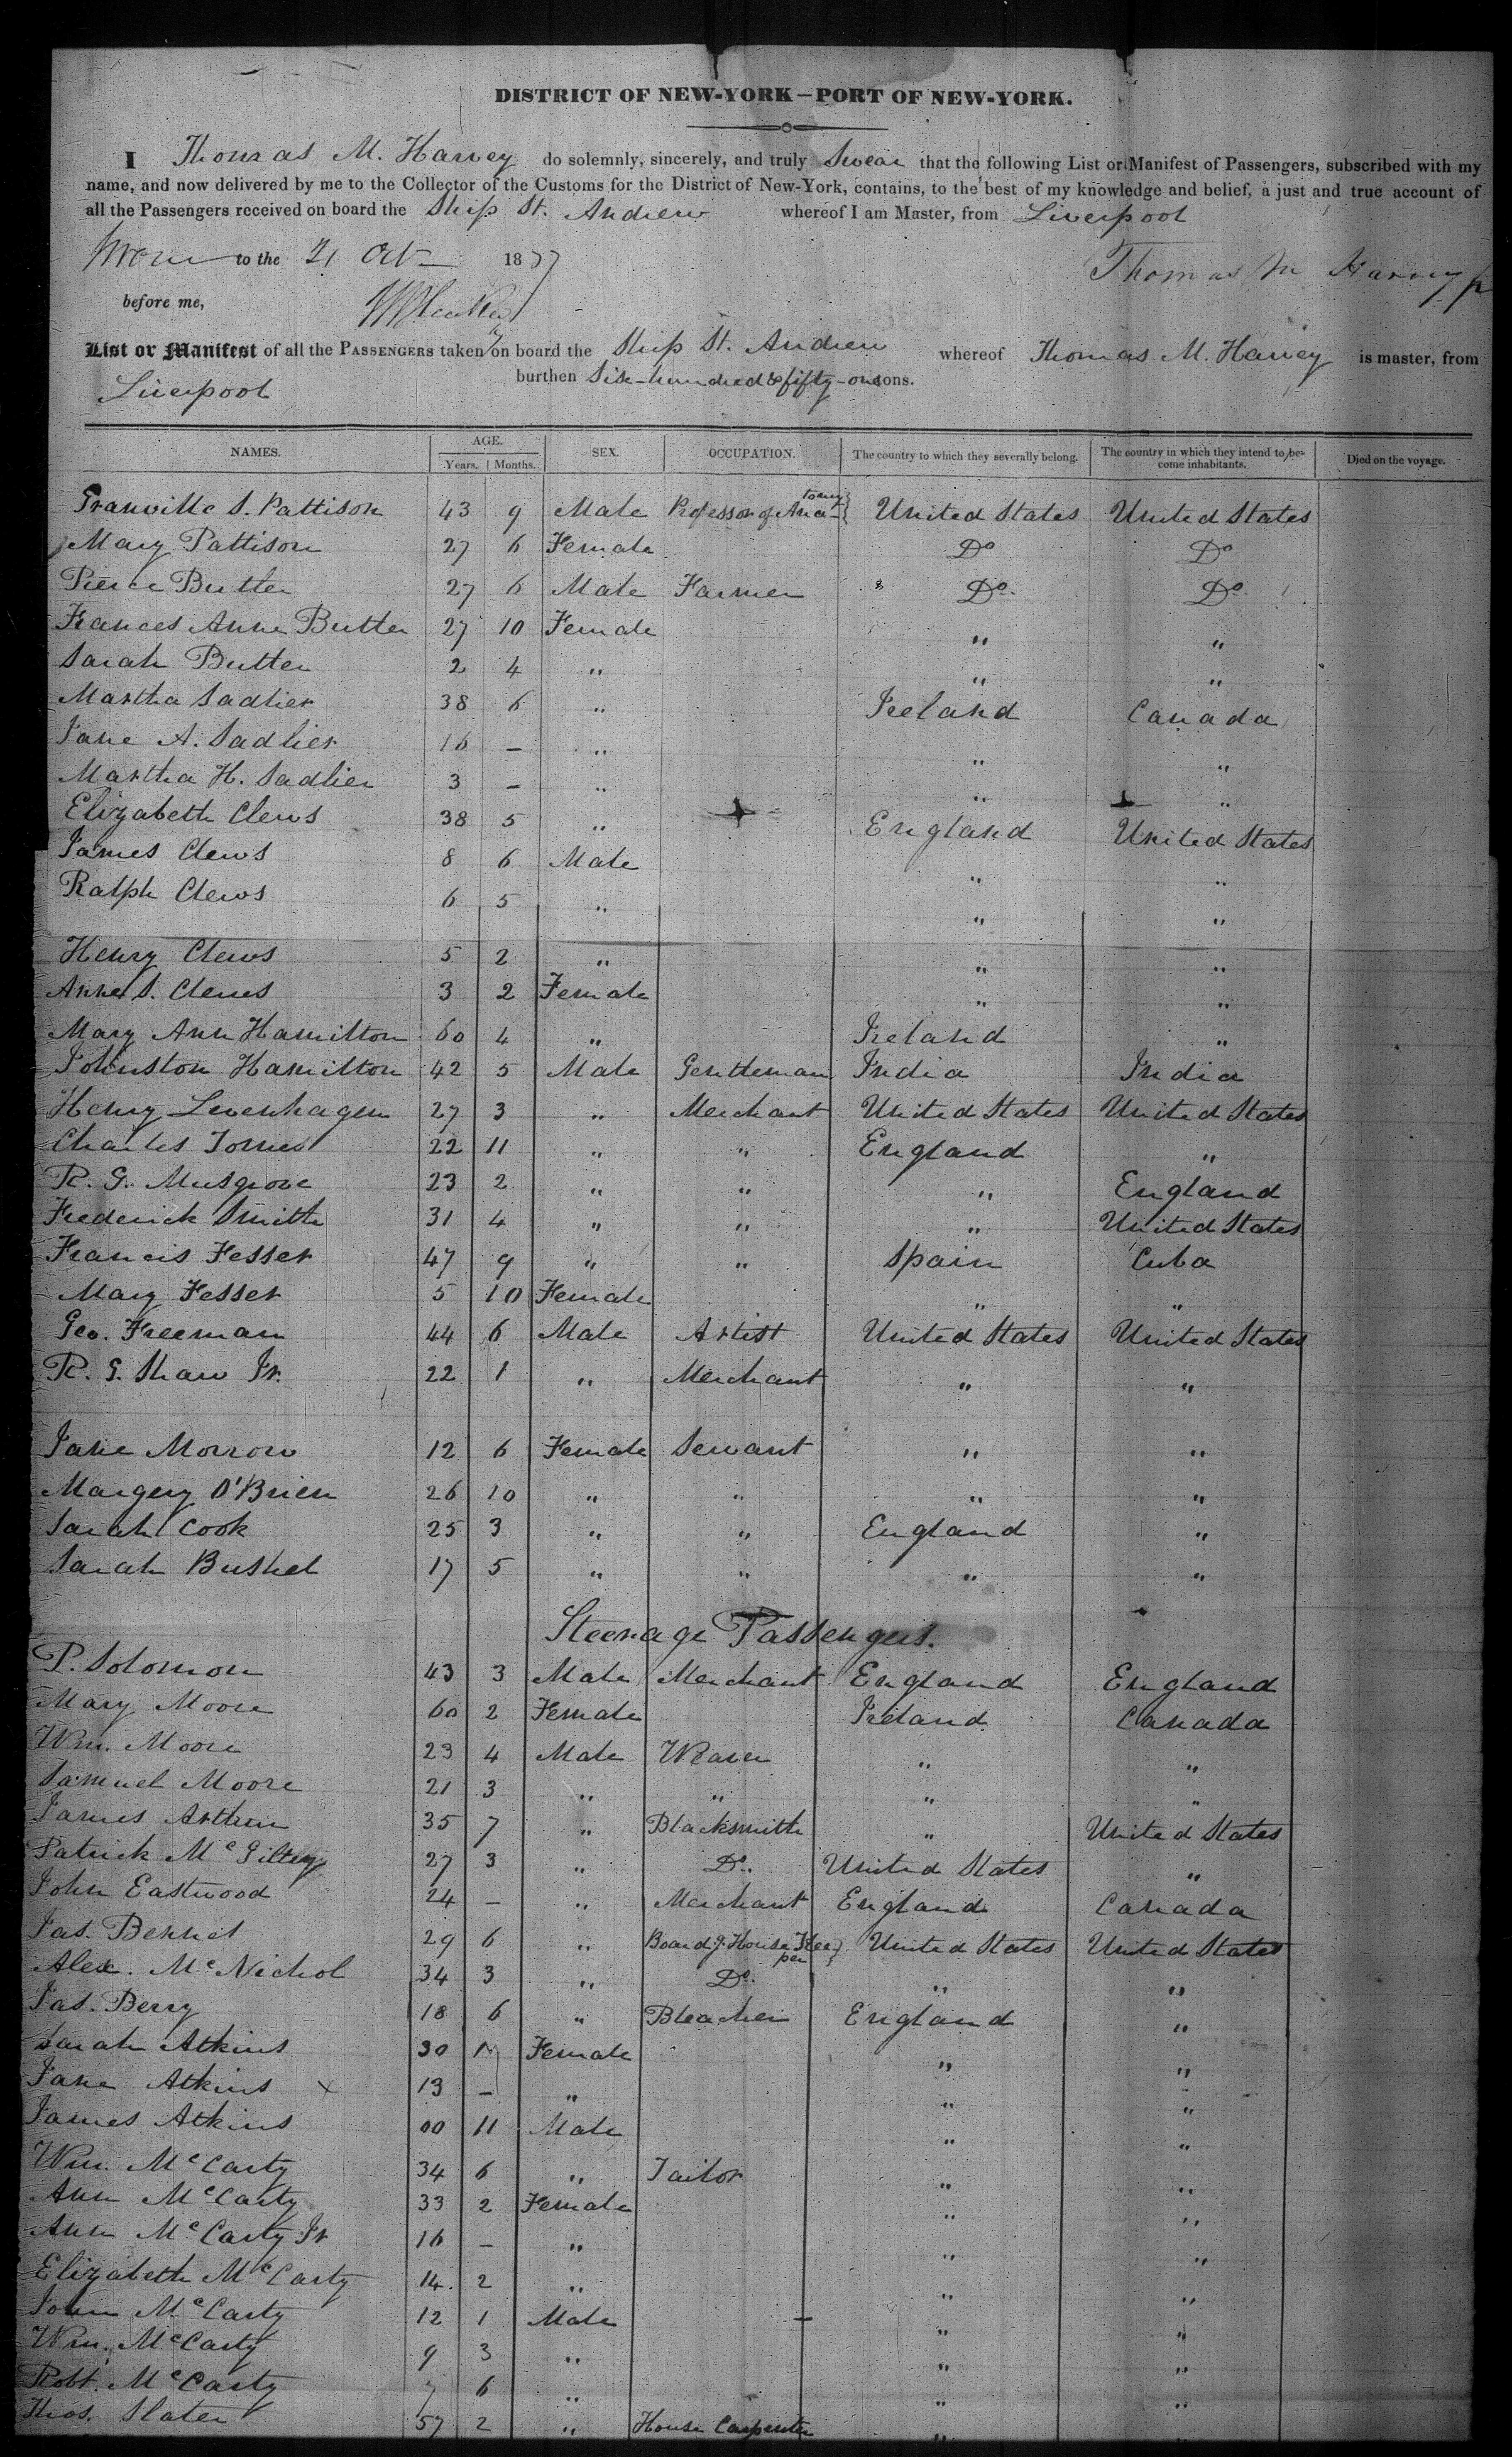 DISTRICT OF NEW-YORK—PORT OF NEW-YORK.
I Thomas M. Harvey do solemnly, sincerely, and truly Swear that the following List or Manifest of Passengers, subscribed with my
name, and now delivered by me to the Collector of the Customs for the District of New-York, contains, to the best of my knowledge and belief, a just and true account of
all the Passengers received on board the Ship St. Andrew whereof I am Master, from Liverpool
Sworn to the 21 Oct 1837 Thomas M Harvey
before me,
List or Manifest of all the PASSENGERS taken on board the Ship St. Andrew whereof Thomas M. Harvey is master, from
Liverpool burthen Six-hundred & fifty-one tons.
NAMES. AGE. Years. Months. SEX. OCCUPATION. The country to which they severally belong. The country in which they intend to become inhabitants. Died on the voyage.
Granville S. Pattison 43 9 Male Professor of Anatomy United States United States
Mary Pattison 27 6 Female Do Do
Pierce Butler 27 6 Male Farmer Do. Do
Frances Anne Butler 27 10 Female " "
Sarah Butler 2 4 " " "
Martha Sadlier 38 6 " Ireland Canada
Jane A. Sadlier 16 — " " "
Martha H. Sadlier 3 — " " "
Elizabeth Clews 38 5 " England United States
James Clews 8 6 Male " "
Ralph Clews 6 5 " " "
Henry Clews 5 2 " " "
Anne S. Clews 3 2 Female " "
Mary Ann Hamilton 60 4 " Ireland "
Johnston Hamilton 42 5 Male Gentleman India India
Henry Levenhagen 27 3 " Merchant United States United States
Charles 22 11 " " England "
R. G. Musgrove 23 2 " " " England
Frederick Smith 31 4 " " " United States
Francis Fesser 47 9 " " Spain Cuba
Mary Fesser 5 10 Female " "
Geo. Freeman 44 6 Male Artist United States United States
R. G. Shaw Jr. 22 1 " Merchant " "
Jane Morrow 12 6 Female Servant " "
Margery O'Brien 26 10 " " " "
Sarah Cook 25 3 " " England "
Sarah Bushel 17 5 " " " "
Steerage Passengers.
P. Solomon 43 3 Male Merchant England England
Mary Moore 60 2 Female Ireland Canada
Wm. Moore 23 4 Male Weaver " "
Samuel Moore 21 3 " " " "
James Arthur 35 7 " Blacksmith " United States
Patrick 27 3 " Do. United States "
John Eastwood 24 — " Merchant England Canada
Jas. Bennet 29 6 " Boardg. House Keeper United States United States
Alex. McNichol 34 3 " Do. " "
Jas. Berry 18 6 " Bleacher England "
Sarah Atkins 30 Female " "
Jane Atkins x 13 — " " "
James Atkins 00 11 Male " "
Wm. McCarty 34 6 " Tailor " "
Ann McCarty 33 2 Female " "
Ann McCarty Jr 16 — " " "
Elizabeth McCarty 14. 2 " " "
John McCarty 12 1 Male " "
Wm. McCarty 9 3 " " "
Robt. McCarty 7 6 " " "
Thos. Slater 57 2 " House Carpenter " "